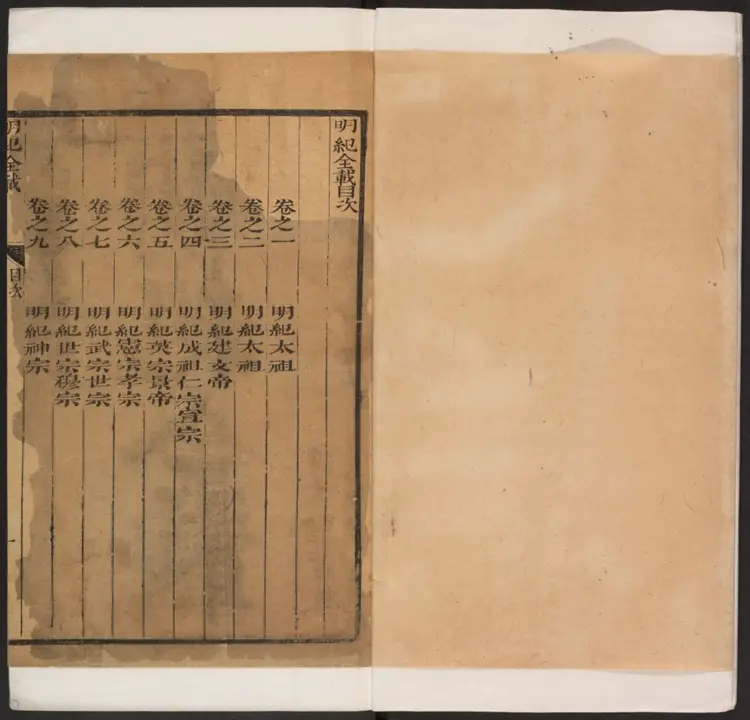 明紀全載目次
卷之一 明紀太祖
卷之二 明紀太祖
卷之三 明紀建文帝
卷之四 明紀成祖仁宗宣宗
卷之五 明紀英宗景帝
卷之六 明紀憲宗孝宗
卷之七 明紀武宗世宗
卷之八 明紀世宗穆宗
卷之九 明紀神宗
明紀全載 目次 一